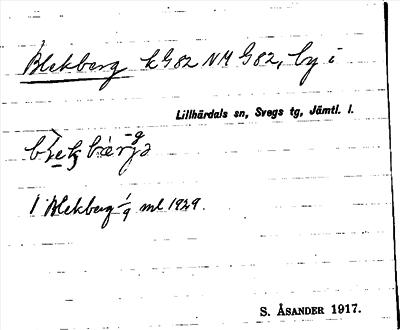 Blekberg kG82 NM G82, by i
Lillhärdals sn, Svegs tg, Jämtl. l.
I Blekberg 1/9 ml 1929.
S. ÅSANDER 1917.